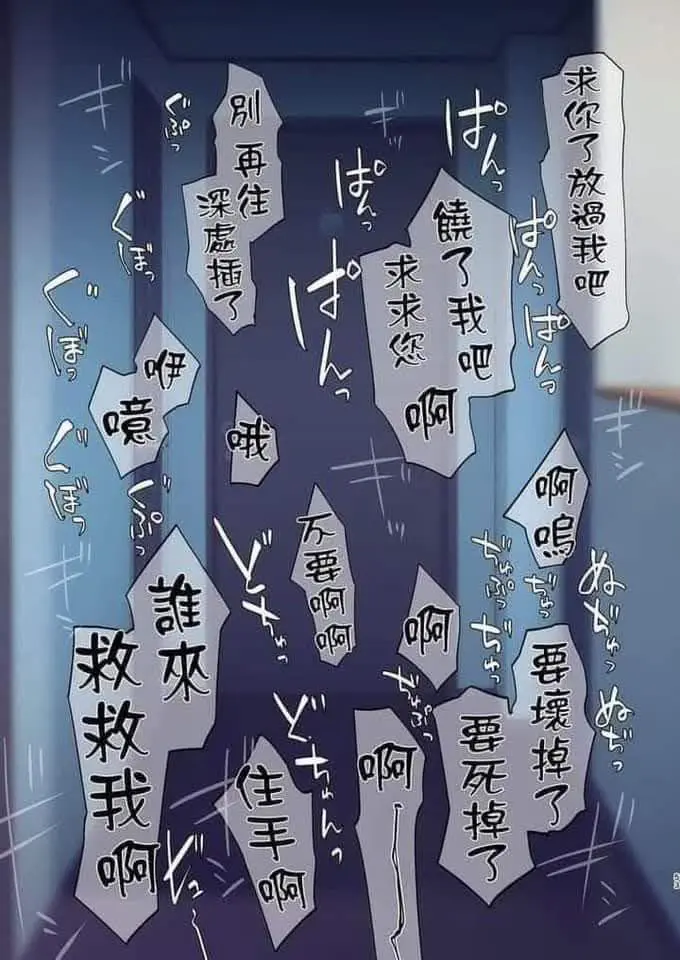 求你了放過我吧
饒了我吧
求求您
啊
別再往
深處插了
咿
噫
哦
啊
嗚
不要啊啊
啊
要壞掉了
要死掉了
誰來
救救我啊
住手啊
啊
ぱんっ
ぱんっ
ぱんっ
ぱんっ
ぱんっ
ぱんっ
ぐぷっ
ぐぼっ
ぐぼっ
ぐぼっ
ぐぷっ
ギシ
ギシ
ギシ
ぢゅぷっ
ぢゅっ
ぢゅっ
ぬぢゅっ
ぬぢっ
ぢゅぷっ
どちゅっ
どちゅんっ
53